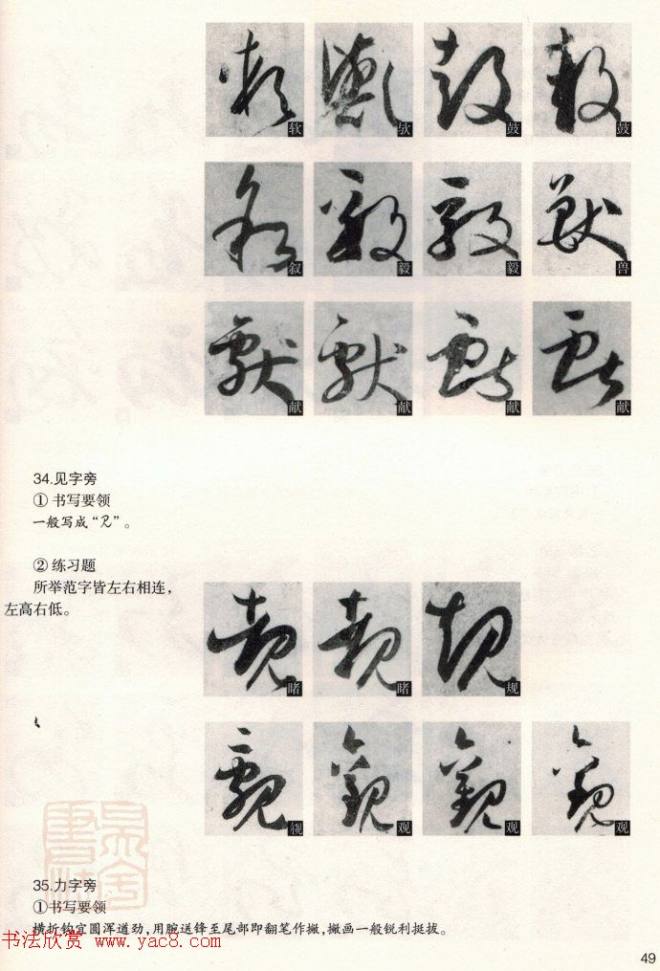 软 欤 鼓 鼓
叙 毅 毅 兽
献 献 献 献
34.见字旁
① 书写要领
一般写成“见”。
② 练习题
所举范字皆左右相连，
左高右低。
睹 睹 规
观 观 观
35.力字旁
①书写要领
横折钩宜圆浑道劲，用腕送锋至尾部即翻笔作撇，撇画一般锐利挺拔。
书法欣赏 www.yac8.com
49